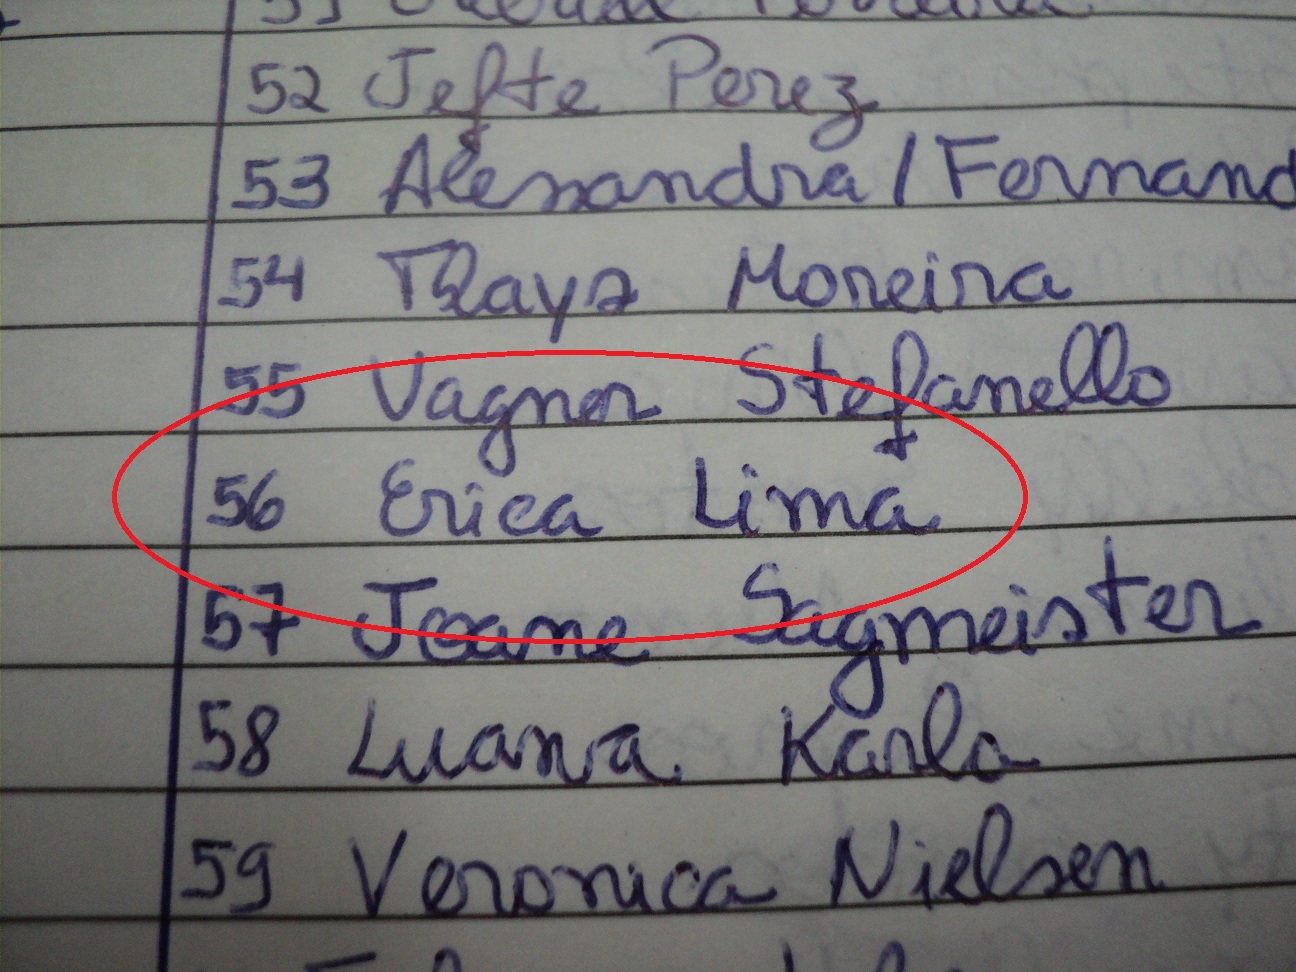 52 Jefte Perez
53 Alexandra / Fernand
54 Thays Moreira
55 Vagner Stefanello
56 Erica Lima
57 Joane Sagmeister
58 Luana Karla
59 Veronica Nielsen